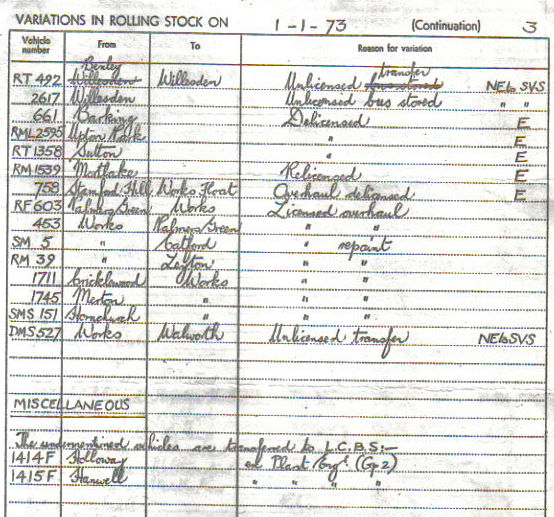 VARIATIONS IN ROLLING STOCK ON 1-1-73 (Continuation) 3
Vehicle number From To Reason for variation
Bexley transfer
RT 492 Willesden Willesden Unlicensed bus stored NEL SVS
2617 Willesden Unlicensed bus stored " "
661 Barking Delicensed E
RML 2595 Upton Park " E
RT 1358 Sutton " E
RM 1539 Mortlake Relicensed E
758 Stamford Hill Works Float Overhaul delicensed E
RF 603 Palmers Green Works Licensed overhaul
453 Works Palmers Green " "
SM 5 " Catford " repaint
RM 39 " Leyton " "
1711 Cricklewood Works " "
1745 Merton " " "
SMS 151 Hornchurch " " "
DMS 527 Works Walworth Unlicensed transfer SVS
MISCELLANEOUS
The undermentioned vehicles are transferred to L.C.B.S:-
1414F Holloway Plant/Engr (Gp 2)
1415F Hanwell " " " "